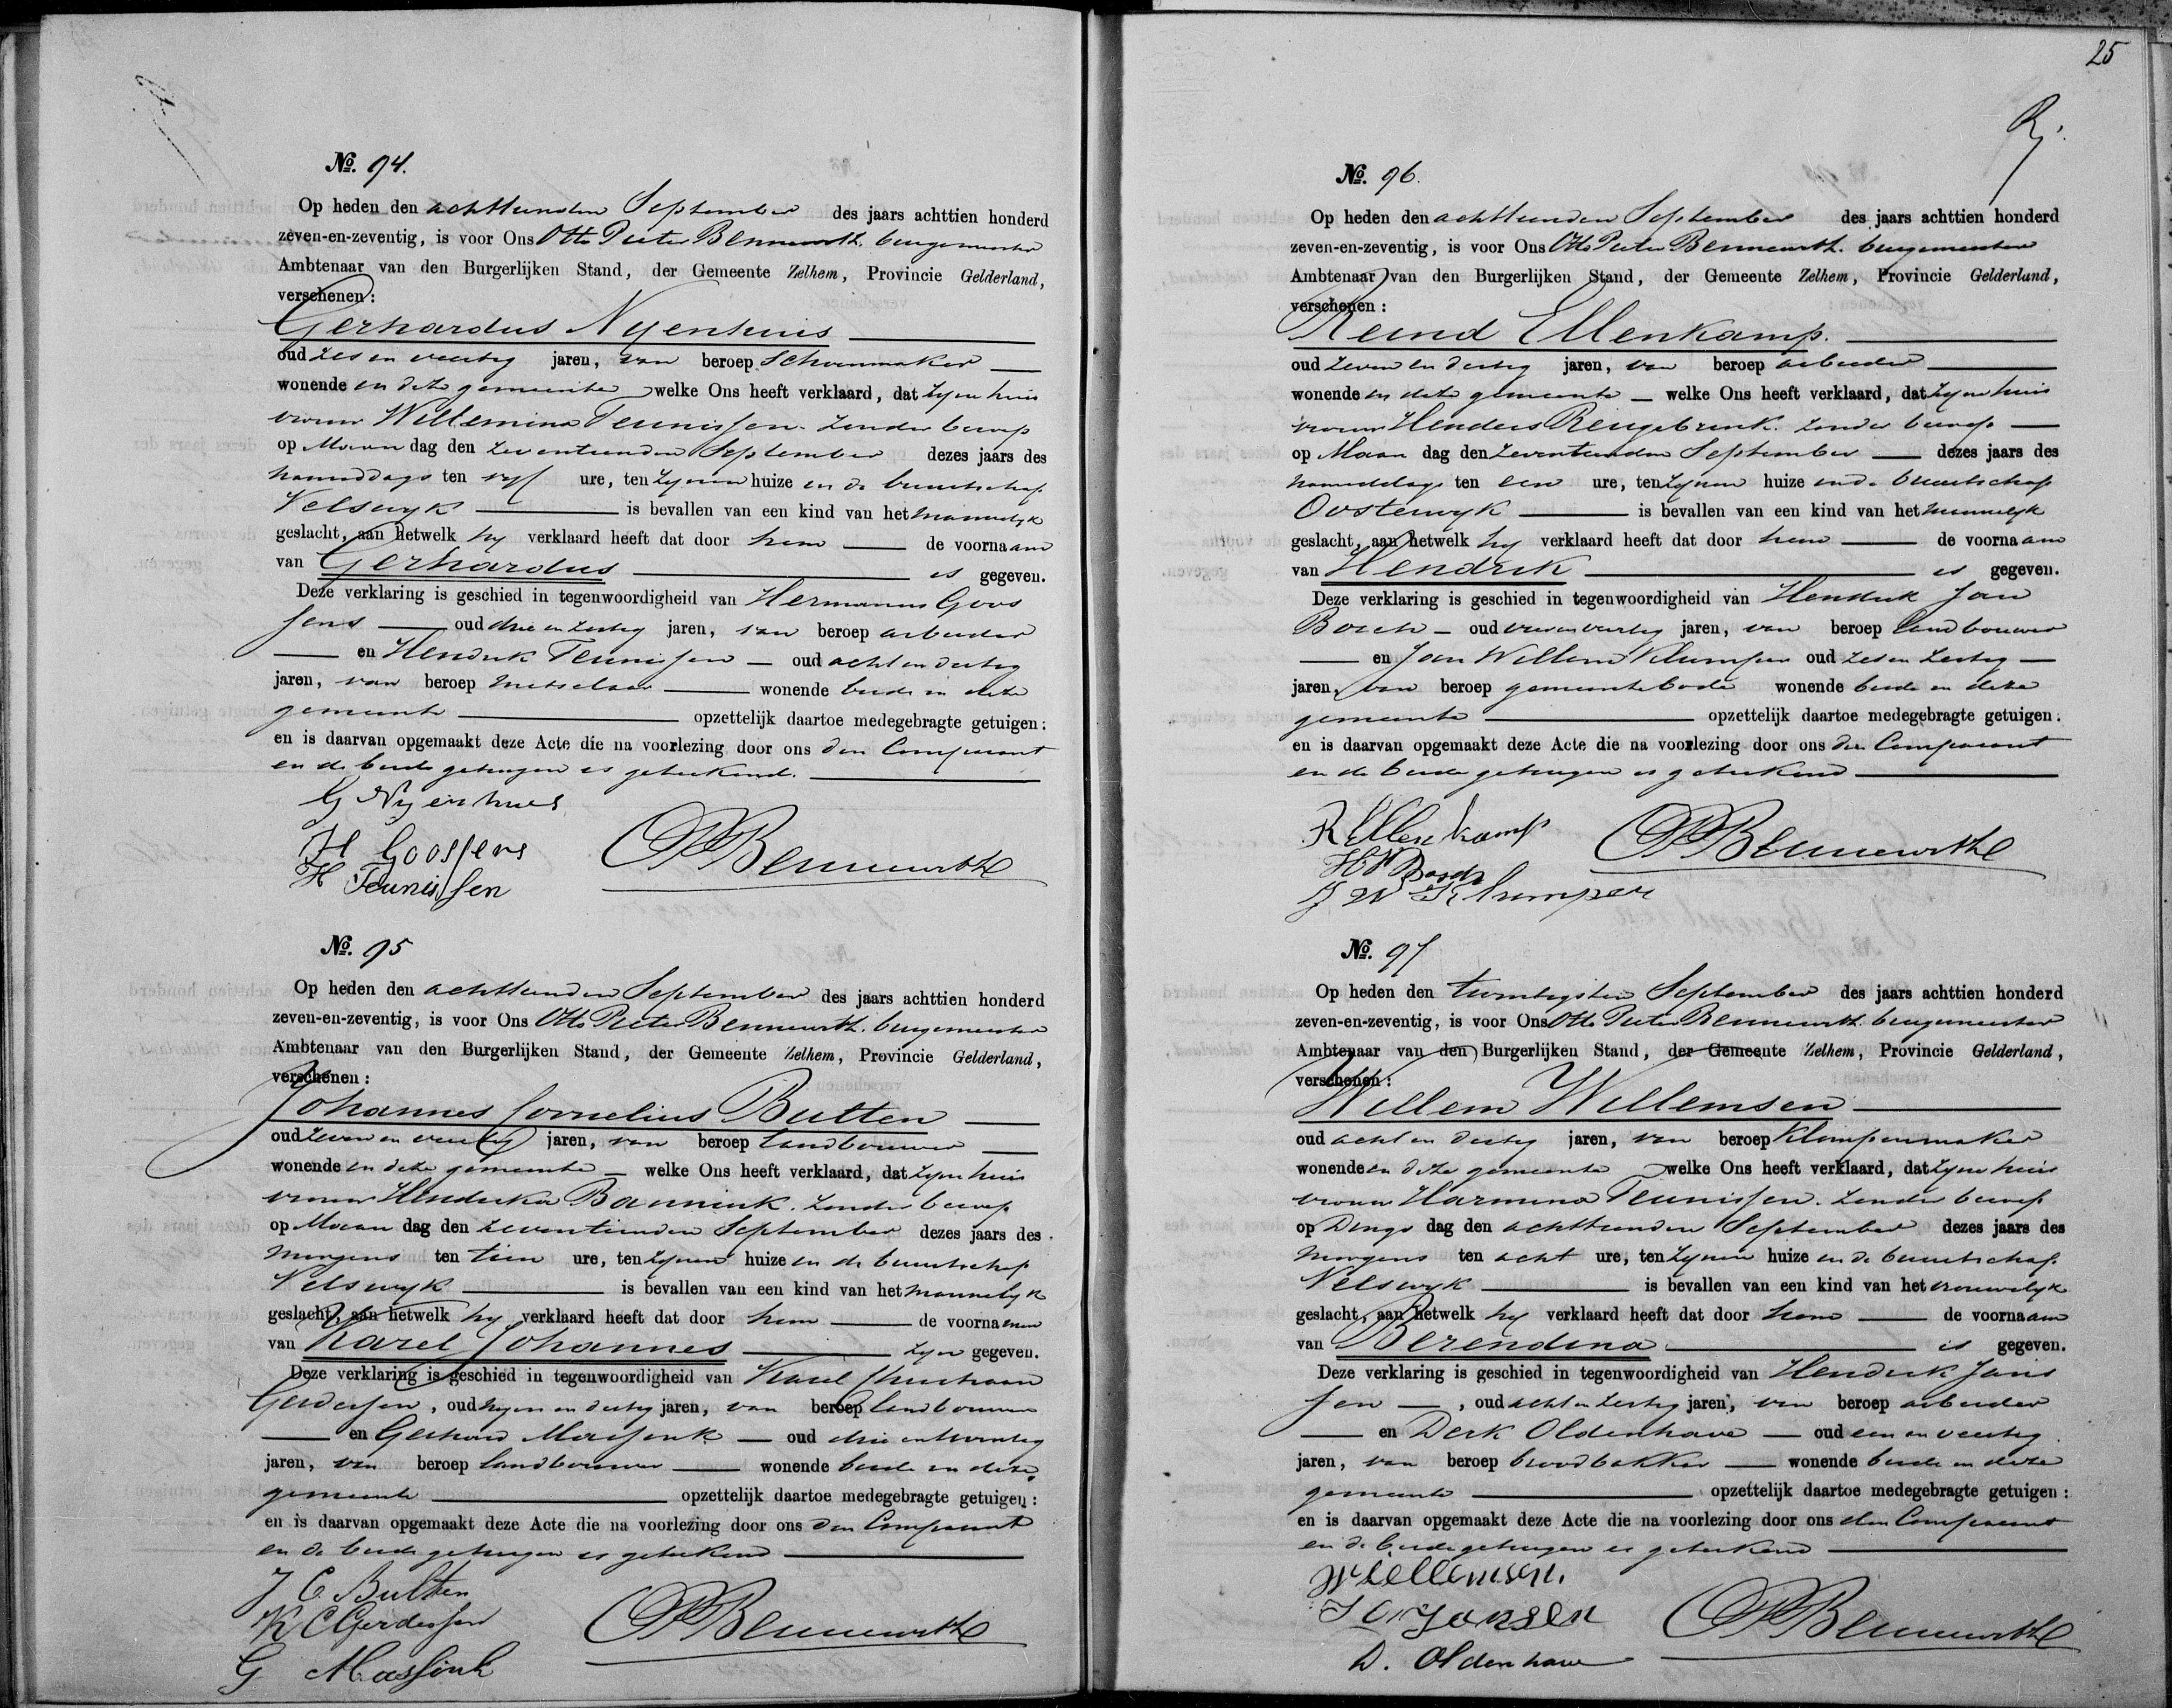 No. 94.
Op heden den achttienden September des jaars achttien honderd
zeven-en-zeventig, is voor Ons Otto Pieter Bennewith. burgemeester
Ambtenaar van den Burgerlijken Stand, der Gemeente Zelhem, Provincie Gelderland,
verschenen:
Gerhardus Nyenhuis
oud zes en veertig jaren, van beroep Schoenmaker
wonende in deze gemeente welke Ons heeft verklaard, dat zyne huis
vrouw Willemina Teunissen. zonder beroep
op Maan dag den zeventienden September dezes jaars des
namiddags ten vyf ure, ten zynen huize in de buurtschap
Velswyk is bevallen van een kind van het mannelyk
geslacht, aan hetwelk hy verklaard heeft dat door hem de voornaam
van Gerhardus is gegeven.
Deze verklaring is geschied in tegenwoordigheid van Hermanus Goos
sens oud drie en zestig jaren, van beroep arbeider
en Hendrik Teunissen oud acht en dertig
jaren, van beroep metselaar wonende beide in deze
gemeente opzettelijk daartoe medegebragte getuigen:
en is daarvan opgemaakt deze Acte die na voorlezing door ons den Comparant
en de beide getuigen is geteekend.
G Nyenhuis
H Goossens
H Teunissen
OPBennewith
No. 95
Op heden den achttienden September des jaars achttien honderd
zeven-en-zeventig, is voor Ons Otto Pieter Bennewith. burgemeester
Ambtenaar van den Burgerlijken Stand, der Gemeente Zelhem, Provincie Gelderland,
verschenen:
Johannes Cornelius Bulten
oud zeven en veertig jaren, van beroep landbouwer
wonende in deze gemeente welke Ons heeft verklaard, dat zyne huis
vrouw Hendrika Bannink. zonder beroep
op Maan dag den zeventienden September dezes jaars des
morgens ten tien ure, ten zynen huize in de buurtschap
Velswyk is bevallen van een kind van het mannelyk
geslacht, aan hetwelk hy verklaard heeft dat door hem de voornamen
van Karel Johannes zyn gegeven.
Deze verklaring is geschied in tegenwoordigheid van Karel Christiaan
Gerdessen, oud negen en dertig jaren, van beroep landbouwer
en Gerhard Massink oud drie en twintig
jaren, van beroep landbouwer wonende beide in deze
gemeente opzettelijk daartoe medegebragte getuigen:
en is daarvan opgemaakt deze Acte die na voorlezing door ons den Comparant
en de beide getuigen is geteekend
J C. Bulten
K C Gerdessen
G Massink
OPBennewith
25
Rj.
No. 96.
Op heden den achttienden September des jaars achttien honderd
zeven-en-zeventig, is voor Ons Otto Pieter Bennewith. burgemeester
Ambtenaar van den Burgerlijken Stand, der Gemeente Zelhem, Provincie Gelderland,
verschenen:
Reind Ellenkamp.
oud zeven en dertig jaren, van beroep arbeider
wonende in deze gemeente welke Ons heeft verklaard, dat zyne huis
vrouw Henders Rengebrink. zonder beroep
op Maan dag den zeventienden September dezes jaars des
namiddags ten een ure, ten zynen huize in de buurtschap
Oosterwyk is bevallen van een kind van het mannelyk
geslacht, aan hetwelk hy verklaard heeft dat door hem de voornaam
van Hendrik is gegeven.
Deze verklaring is geschied in tegenwoordigheid van Hendrik Jan
Bosch oud vier en veertig jaren, van beroep landbouwer
en Jan Willem Klumper oud zes en zestig
jaren, van beroep gemeentebode wonende beide in deze
gemeente opzettelijk daartoe medegebragte getuigen:
en is daarvan opgemaakt deze Acte die na voorlezing door ons den Comparant
en de beide getuigen is geteekend
R Ellenkamp
H J Bosch
J W Klumper
OPBennewith
No. 97
Op heden den twintigsten September des jaars achttien honderd
zeven-en-zeventig, is voor Ons Otto Pieter Bennewith. burgemeester
Ambtenaar van den Burgerlijken Stand, der Gemeente Zelhem, Provincie Gelderland,
verschenen:
Willem Willemsen
oud acht en dertig jaren, van beroep klompenmaker
wonende in deze gemeente welke Ons heeft verklaard, dat zyne huis
vrouw Harmina Teunissen. zonder beroep
op Dings dag den achttienden September dezes jaars des
morgens ten acht ure, ten zynen huize in de buurtschap
Velswyk is bevallen van een kind van het vrouwelyk
geslacht, aan hetwelk hy verklaard heeft dat door hem de voornaam
van Berendina is gegeven.
Deze verklaring is geschied in tegenwoordigheid van Hendrik Jans
sen, oud acht en zestig jaren, van beroep arbeider
en Derk Oldenhave oud een en veertig
jaren, van beroep broodbakker wonende beide in deze
gemeente opzettelijk daartoe medegebragte getuigen:
en is daarvan opgemaakt deze Acte die na voorlezing door ons den Comparant
en de beide getuigen is geteekend
W Willemsen.
Jansen
D. Oldenhave
OPBennewith